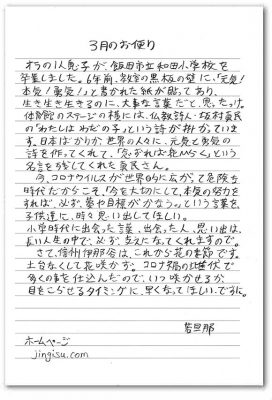 3月のお便り
オラの1人息子が、飯田市立和田小学校を
卒業しました。6年前、教室の黒板の壁に、「元気!
本気!勇気!」と書かれた紙が貼ってあり、
生き生き生きるのに、大事な言葉だと思ったっけ。
体育館のステージの横には、仏教詩人・坂村真民
の「わたしは わだの子」という詩が掛かっていま
す。日本ばかりか世界の人々に、元気と勇気の
詩を作ってくれて、「念ずれば花ひらく」という
名言を残してくれた真民さん。
今、コロナウイルスが世界的に広がって危険な
時代だからこそ、「今を大切にして、本気の努力を
すれば、必ず、夢や目標がかなう。」という言葉を
子供達に、時々思い出してほしい。
小学時代に出会った言葉、出会った人、思い出は、
長い人生の中で、必ず、支えになってくれますので。
さて、信州伊那谷は、これから花の季節です。
土台なくして花咲かず。コロナ禍の
多くの事を仕込んだので、いつ咲かせるか
目をこらせるタイミングに、早くなってほしいですに。
皆旦那
ホームページ
jingisu.com